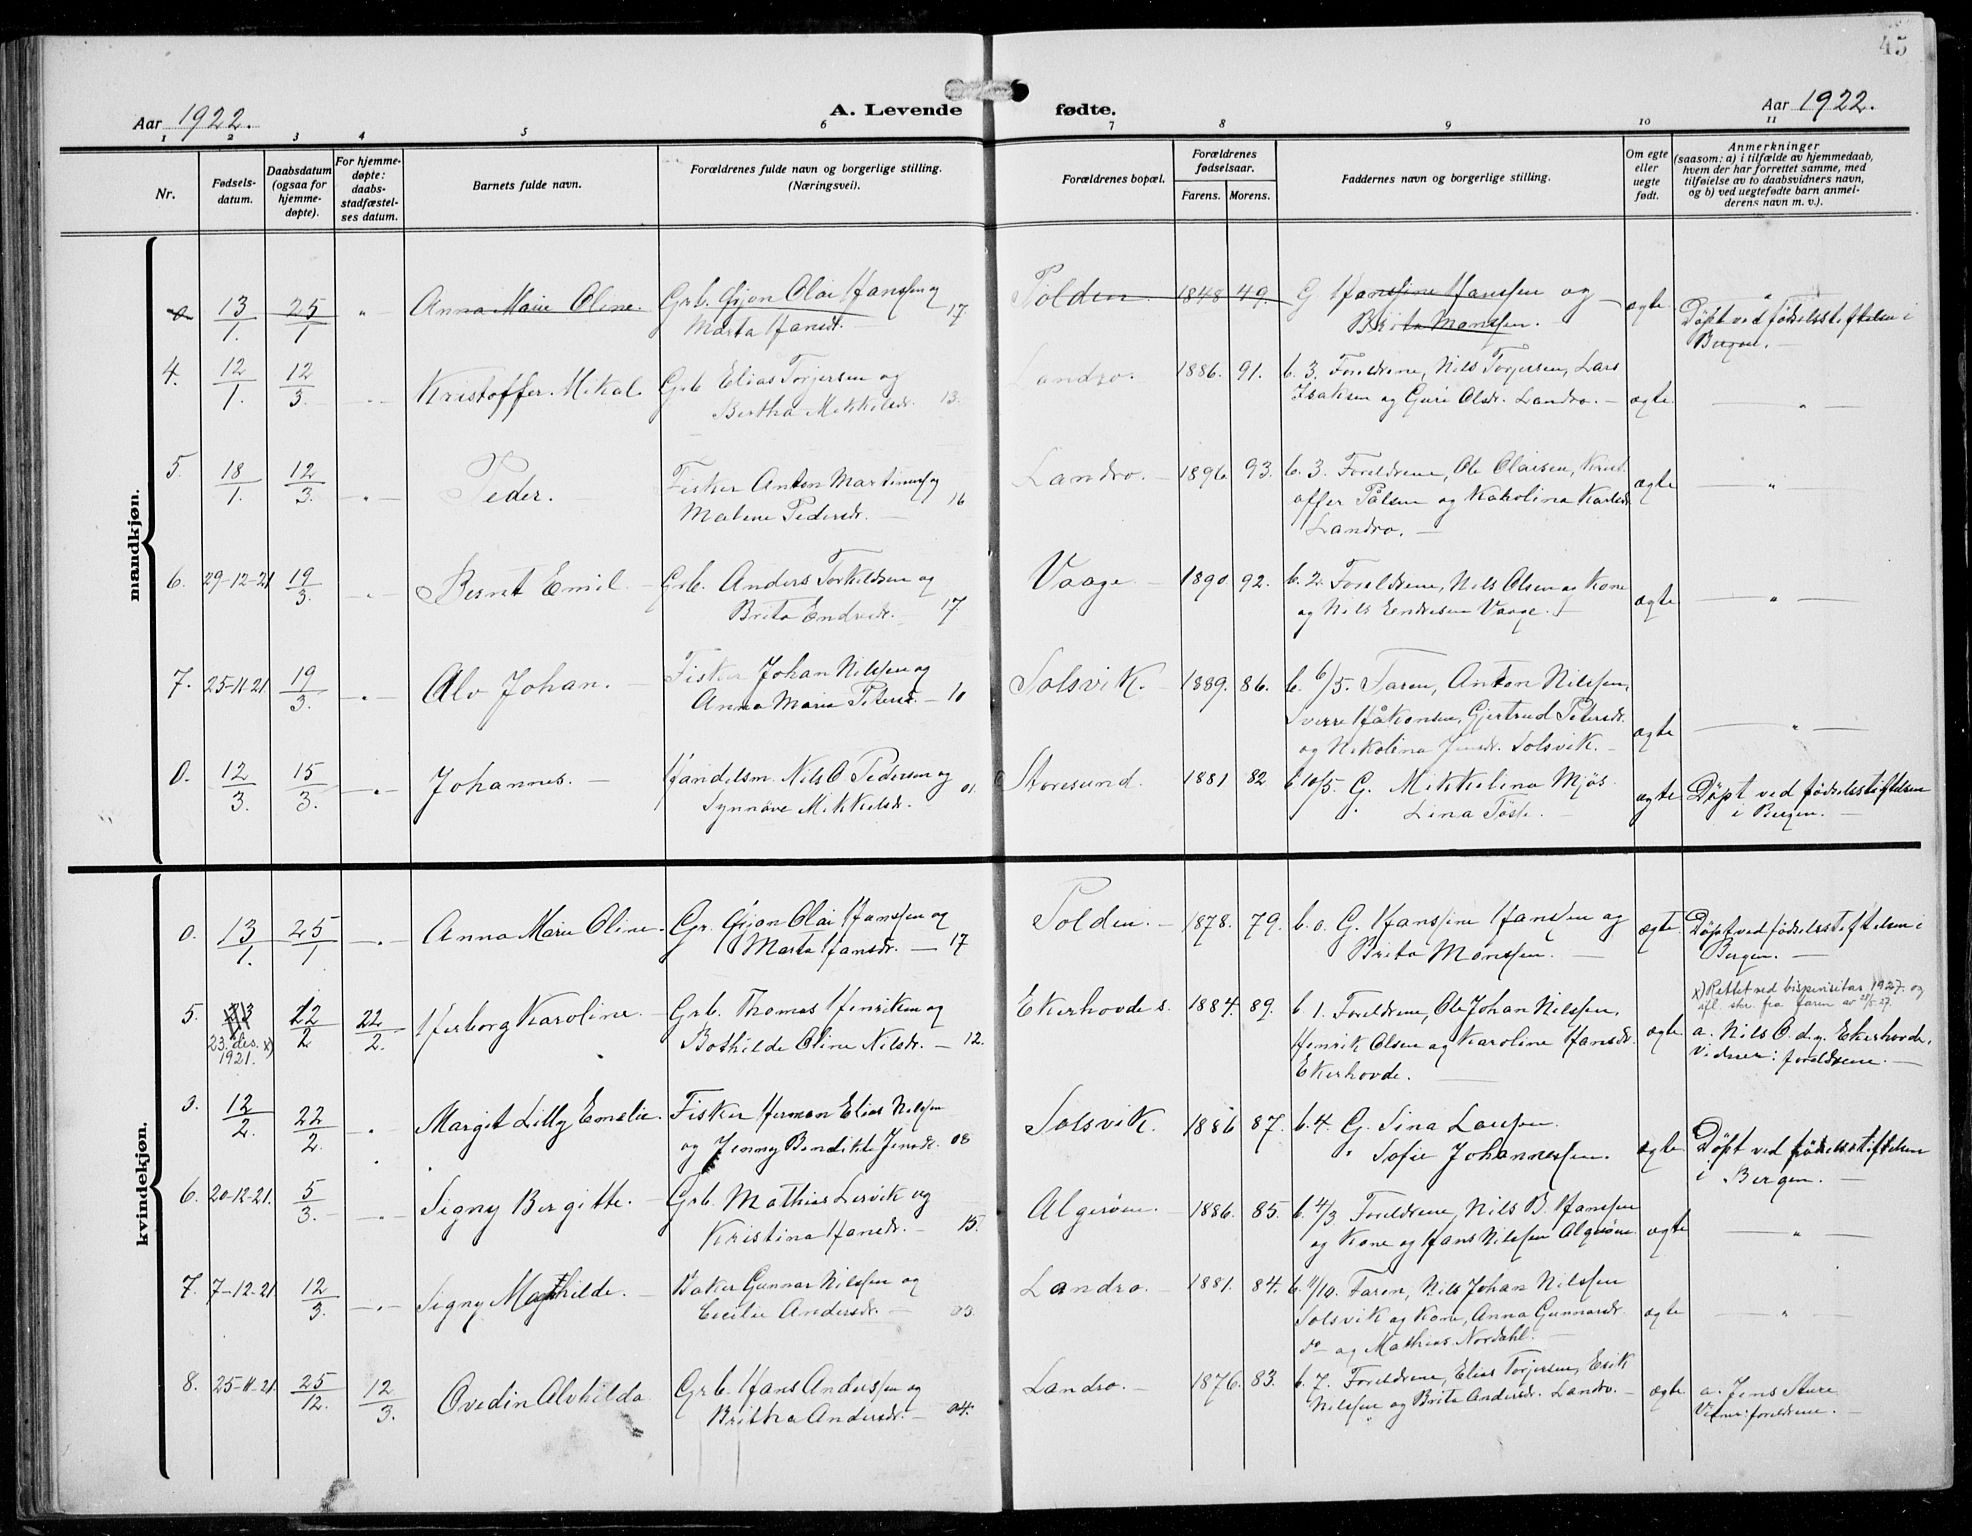 45
Aar 1922.
A. Levende fødte.
Aar 1922.
1 2 3 4 5 6 7 8 9 10 11
Nr.
Fødsels-
datum.
Daabsdatum
(ogsaa for
hjemme-
døpte).
For hjemme-
døpte:
daabs-
stadfæstel-
ses datum.
Barnets fulde navn.
Forældrenes fulde navn og borgerlige stilling.
(Næringsvei).
Forældrenes bopæl.
Forældrenes
fødselsaar.
Farens. Morens.
Faddernes navn og borgerlige stilling.
Om egte
eller
uegte
født.
Anmerkninger
(saasom: a) i tilfælde av hjemmedaab,
hvem der har forrettet samme, med
tilføielse av to daabsvidners navn,
og b) ved uegtefødte barn anmel-
derens navn m. v.).
mandkjøn.
0. 13/1. 25/1 " Anna Marie Oline. Grb. Gjøn Olai Hanssen og
Marta Hansdr. 17
Polden 1848 49. G. Hanssine Hanssen og
Brita Monssen. ægte "
Døpt ved fødselsstiftelsen i
Bergen.
4. 12/1. 12/3. " Kristoffer Mikal. Grb. Elias Torjersen og
Bertha Mikkelsdr. 13.
Landro. 1886. 91. b. 3. Foreldrene, Nils Torjersen, Lars
Isaksen og Guri Olsdr. Landro. ægte. "
5. 18/1. 12/3. " Peder. Fisker Anton Martinus og
Malene Pedersdr. 16
Landro. 1896. 93. b. 3. Foreldrene, Ole Olaisen, Krist
offer Pålsen og Karolina Karlsdr
Landro. ægte "
6. 29-12-21 19/3. " Bernt Emil Grb. Anders Torkildsen og
Brita Endresdr. 17
Vaage 1890 92. b. 2. Foreldrene, Nils Olsen og Kone
og Nils Endresen Vaage. ægte "
7. 25-11-21. 19/3. " Alv Johan. Fisker Johan Nilssen og
Anna Marie Petersdr. 10
Solsvik. 1889. 86. b. 6/5. Faren, Anton Nilssen,
Sverre Håkonsen, Gjertrud Petersdr.
og Nikolina Jensdr. Solsvik. ægte "
0. 12/3. 15/3. " Johannes. Handelsm. Nils O. Pedersen og
Synnøve Mikkelsdr. 01.
Storesund. 1881 82 b 10/5. G. Mikkelina Mjøs
Lina Toste. ægte Døpt ved fødselsstiftelsen
i Bergen.
kvindekjøn.
0. 13/1. 25/1 " Anna Marie Oline. Gr. Gjøn Olai Hanssen og
Marta Hansdr. 17
Polden. 1878. 79. b. 0. G. Hanssine Hanssen og
Brita Monssen. ægte. Døpt ved fødselsstiftelsen i
Bergen.
5. 23. des. x)
1921. 22/2 22/2. Herborg Karoline. Grb. Thomas Henriksen og
Bothilde Oline Nilsdr. 12.
Ekerhovde s. 1884. 89. b. 1. Foreldrene, Ole Johan Nilssen,
Henrik Olsen og Karoline Hansdr.
Ekerhovde. ægte
x) Rettet ved bispevisitas 1927. og
ifl. skr. fra faren av 28/5-27.
a. Nils O. d. y. Ekerhovde.
Vidner: foreldrene.
3. 12/2. 22/2. " Margit Lilly Emelie. Fisker Herman Elias Nilssen
og Jenny Bendikte Jensdr. 08
Solsvik. 1886 87. b. 4. G. Sina Larssen.
" Sofie Johannessen. ægte Døpt ved fødselsstiftelsen
i Bergen.
6. 20-12-21. 5/3. " Signy Bergitte. Grb. Mathias Lervik og
Kristina Hansdr. 15.
Algerøen. 1886. 85. b. 4/3. Foreldrene, Nils B. Hanssen
og Kone og Hans Nilssen Algerøen. ægte "
7. 7-12-21 12/3. " Signy Mathilde. Baker Gunnar Nilssen og
Cecilie Andersdr. 03.
Landro. 1881. 84. b. 11/10. Faren, Nils Johan Nilssen
Solsvik og Kone, Anna Gunnarsdr.
do og Mathias Nordahl. ægte "
8. 25-11-21. 25/12. 12/3. Ovedin Alvhilda Grb. Hans Anderssen og
Britha Andersdr. 04.
Landro. 1876. 83. b. 7. Foreldrene, Elias Torjersen, Erik
Nilssen og Brita Andersdr. Landro. ægte a. Jens Sture
Vitner: foreldrene.